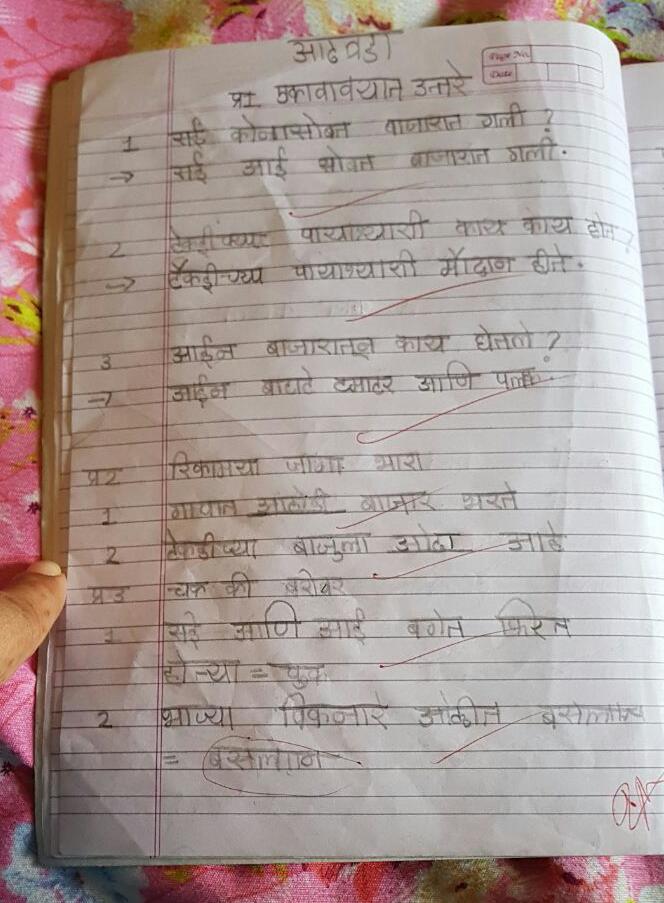 आठवडी
Page No.
Date
प्र1 एकावाक्यात उत्तरे
1 सई कोनासोबत बाजारात गली ?
→ सई आई सोबत बाजारात गली.
2 टेकडीच्या पायाश्याशी काय काय होत ?
→ टेकडीच्या पायाश्याशी मैदान होते.
3 आईन बाजारातून काय घेतले ?
→ आईन बाटाटे टमाटर आणि पलक.
प्र2 रिकामया जागा भारा
1 गावात आठवडी बाजार भरते
2 टेकडीच्या बाजुला ओढा आहे
प्र3 चूक की बरोबर
1 सई आणि आई बगेत फिरत
होत्या = चुक
2 भाज्या विकनारे ओळीत
=